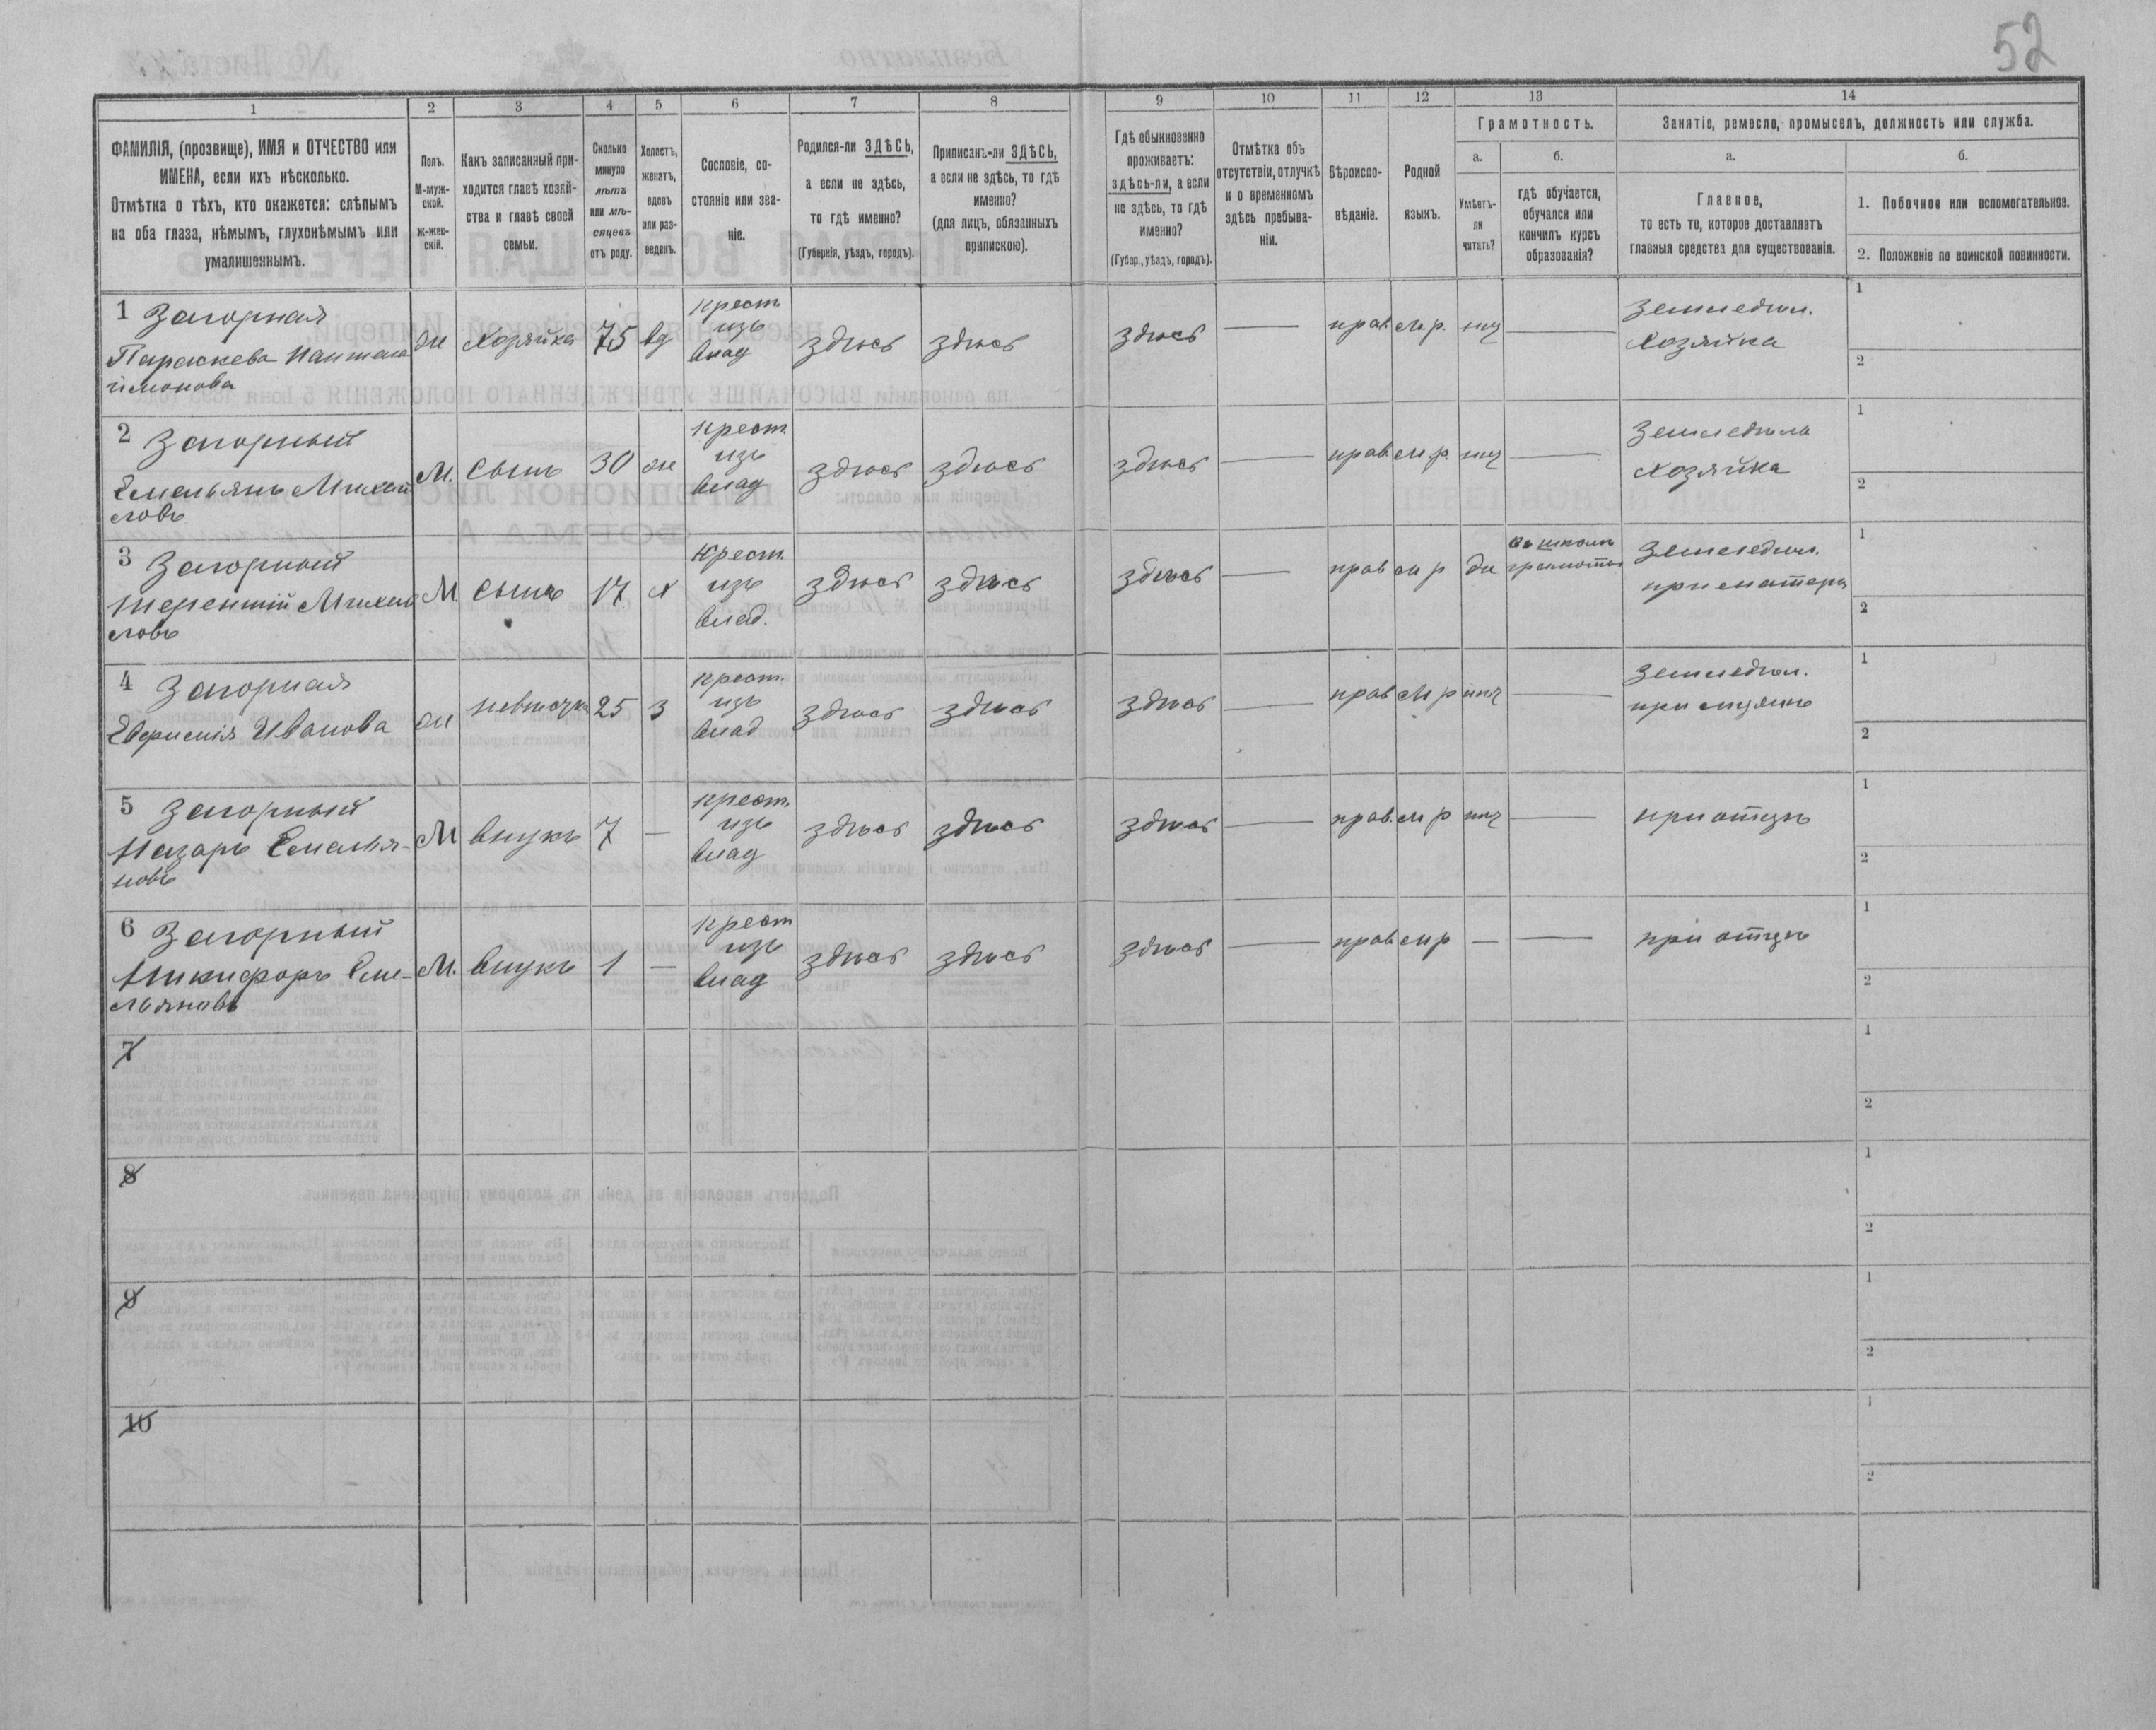 52
1 2 3 4 5 6 7 8 9 10 11 12 13 14
ФАМИЛІЯ, (прозвище), ИМЯ и ОТЧЕСТВО или
ИМЕНА, если ихъ нѣсколько.
Отмѣтка о тѣхъ, кто окажется: слѣпымъ
на оба глаза, нѣмымъ, глухонѣмымъ или
умалишеннымъ.
Полъ.
М-муж-
ской.
ж-жен-
скій.
Какъ записанный при-
ходится главѣ хозяй-
ства и главѣ своей
семьи.
Сколько
минуло
лѣтъ
или мѣ-
сяцевъ
отъ роду.
Холостъ,
женатъ,
вдовъ
или раз-
веденъ.
Сословіе, со-
стояніе или зва-
ніе.
Родился-ли ЗДѢСЬ,
а если не здѣсь,
то гдѣ именно?
(Губернія, уѣздъ, городъ).
Приписанъ-ли ЗДѢСЬ,
а если не здѣсь, то гдѣ
именно?
(для лицъ, обязанныхъ
припискою).
Гдѣ обыкновенно
проживаетъ:
здѣсь-ли, а если
не здѣсь, то гдѣ
именно?
(Губер., уѣздъ, городъ).
Отмѣтка объ
отсутствіи, отлучкѣ
и о временномъ
здѣсь пребыва-
ніи.
Вѣроиспо-
вѣданіе.
Родной
языкъ.
Грамотность.
а.
Умѣетъ-
ли
читать?
б.
гдѣ обучается,
обучался или
кончилъ курсъ
образованія?
Занятіе, ремесло, промыселъ, должность или служба.
а.
Главное,
то есть то, которое доставляетъ
главныя средства для существованія.
б.
1. Побочное или вспомогательное.
2. Положеніе по воинской повинности.
1 Загорная
Параскева Пантела
ймонова
ж Хозяйка 75 вд
крест.
изъ
влад
здѣсь здѣсь здѣсь — прав. м.р. нѣ —
земледѣл.
хозяйка
1
2
2 Загорный
Емельянъ Михай
ловъ
М. сынъ 30 же
крест.
изъ
влад
здѣсь здѣсь здѣсь — прав. м.р. нѣ —
земледѣла
хозяйка
1
2
3 Загорный
Терентій Михай
ловъ
М. сынъ 17 х
крест.
изъ
влад.
здѣсь здѣсь здѣсь — прав м р да
въ школѣ
грамоты
земледѣл.
при матери
1
2
4 Загорная
Евфимія Иванова
ж невѣстка 25 З
крест.
изъ
влад
здѣсь здѣсь здѣсь — прав м р нѣ —
земледѣл.
при мужѣ
1
2
5 Загорный
Назаръ Емелья-
новъ
М внукъ 7 —
крест.
изъ
влад
здѣсь здѣсь здѣсь — прав. м р нѣ —
при отцѣ
1
2
6 Загорный
Никифоръ Еме-
льяновъ
М. внукъ 1 —
крест
изъ
влад
здѣсь здѣсь здѣсь — прав м р — —
при отцѣ
1
2
7
1
2
8
1
2
9
1
2
10
1
2